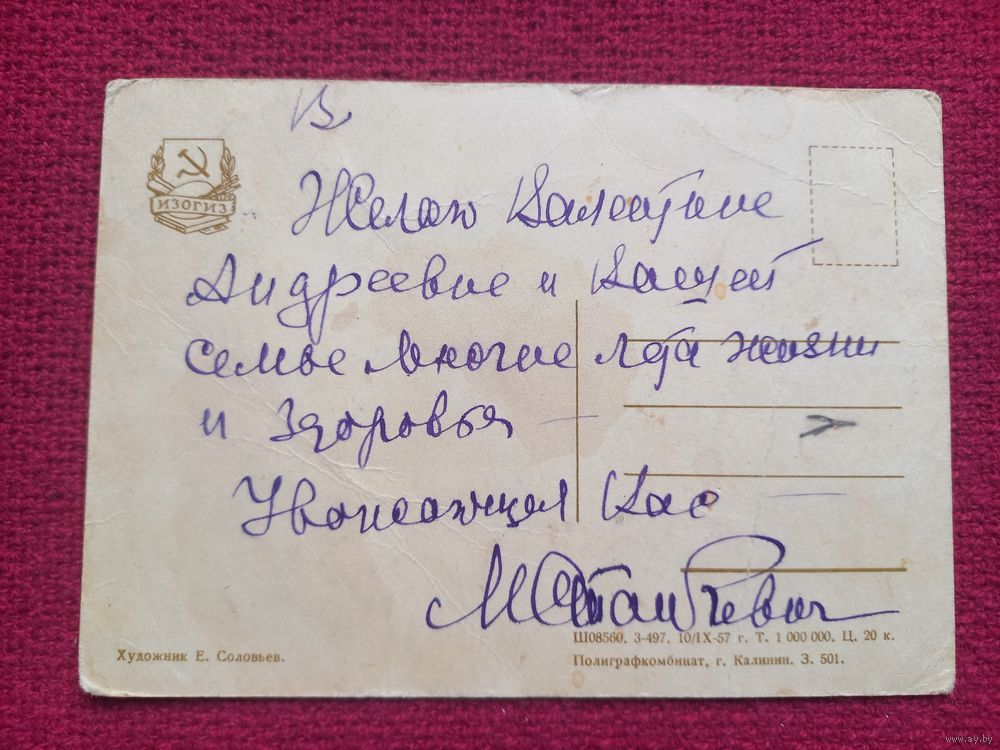 В
ИЗОГИЗ
Желаю Валентине
Андреевне и Вашей
семье многие лета жизни
и здоровья —
Уважающая Вас —
МСтанкевич
Ш08560. З-497. 10/IX-57 г. Т. 1 000 000. Ц. 20 к.
Художник Е. Соловьев.
Полиграфкомбинат, г. Калинин. З. 501.
www.ay.by